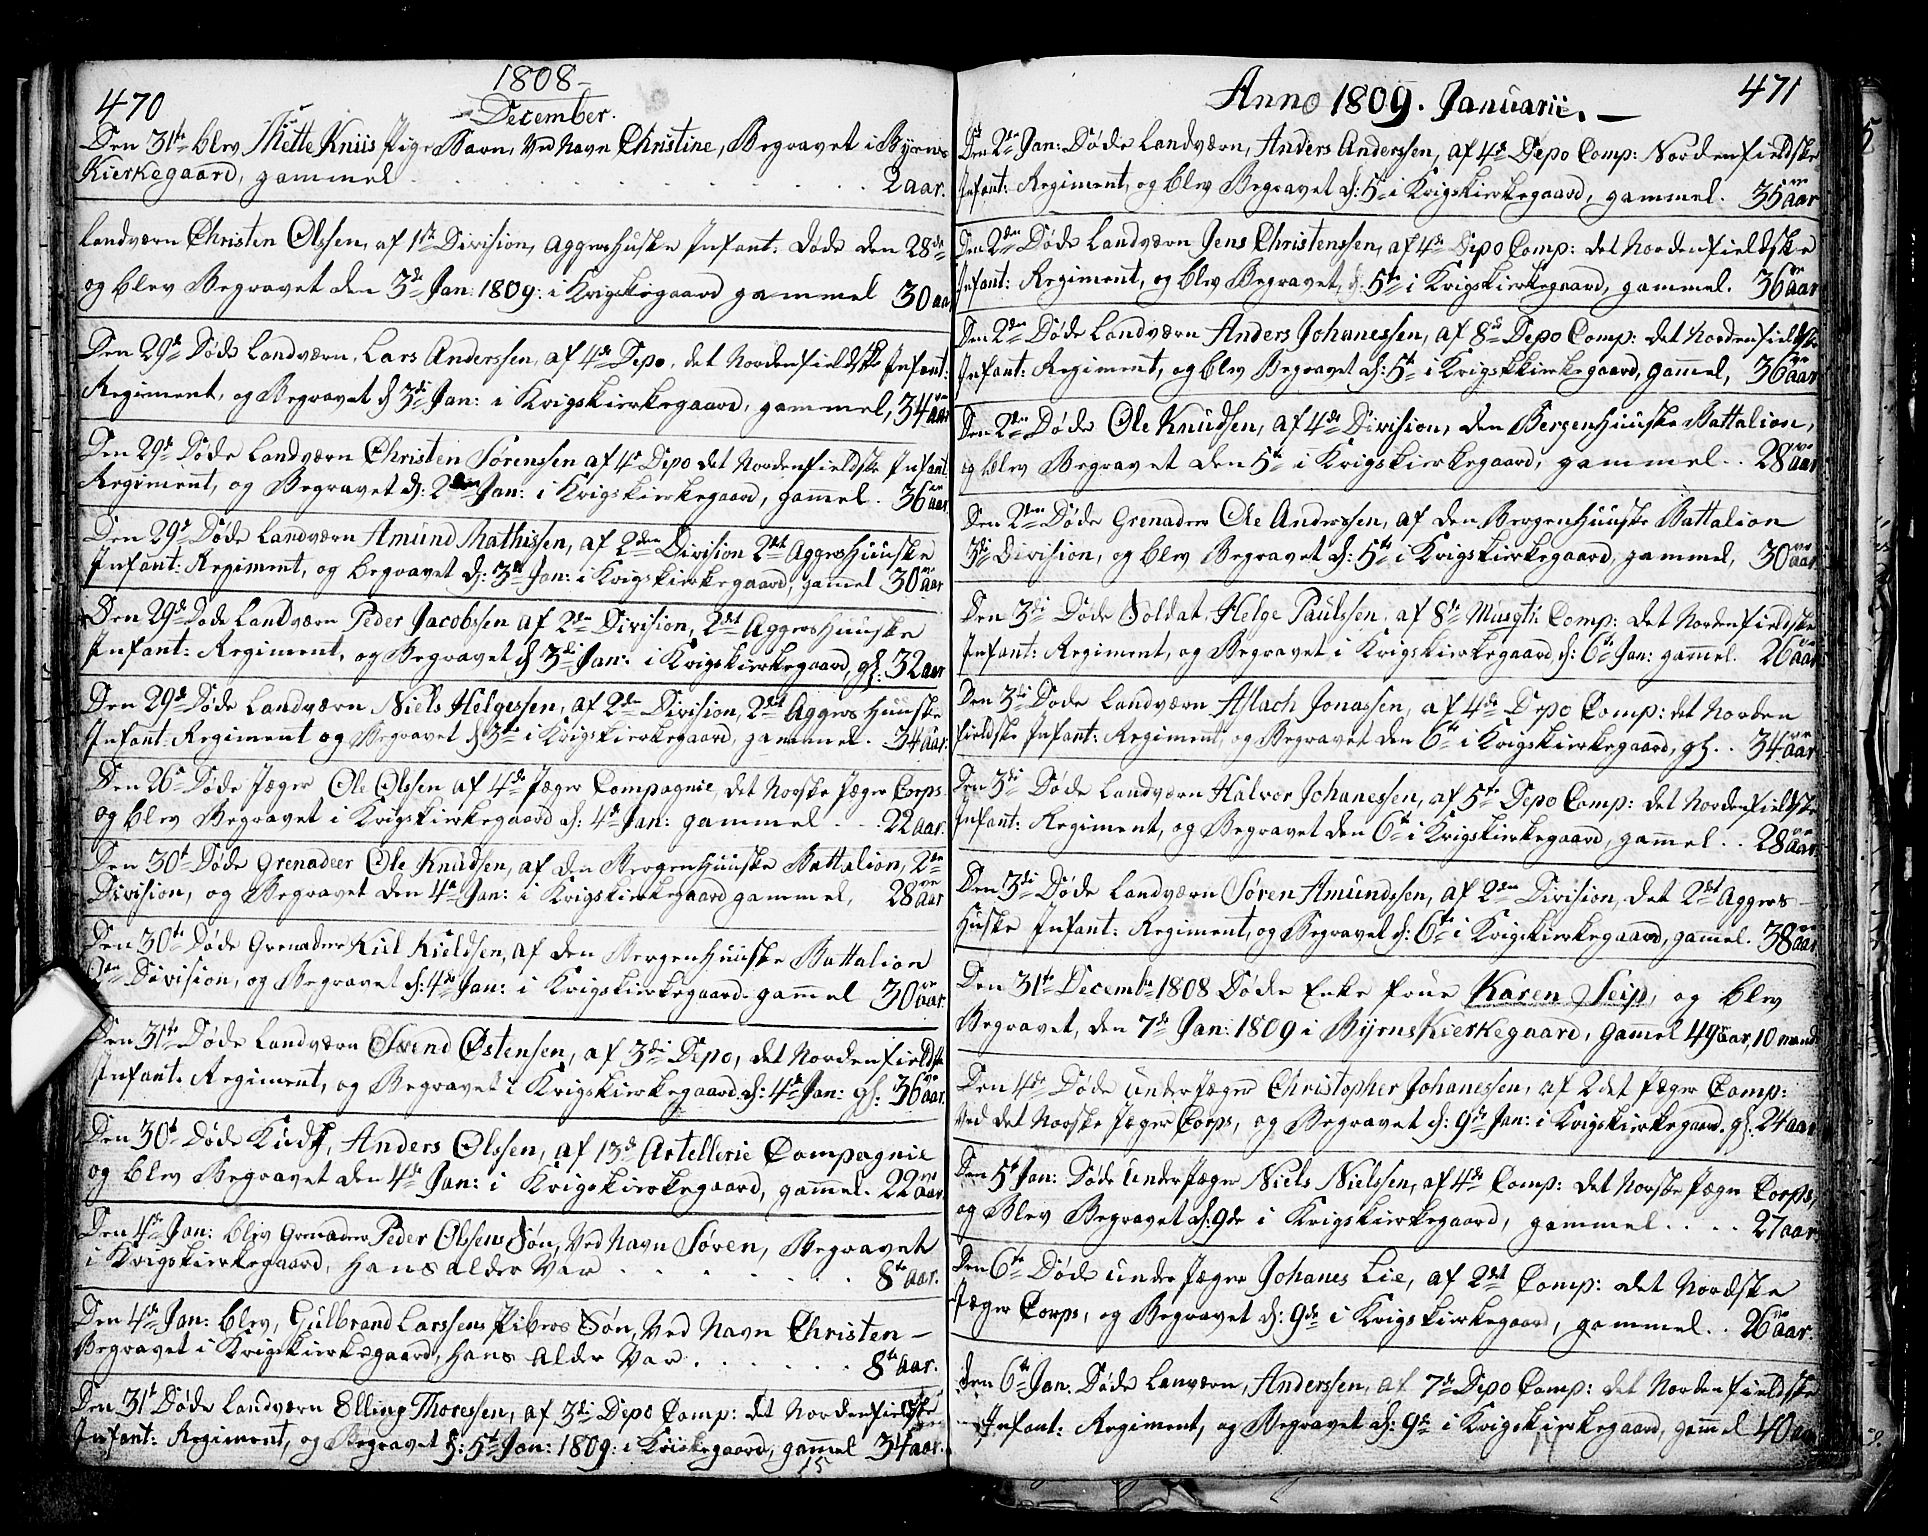 470
1808
December.
Den 31te blev Mette Kniis Pige Barn, Ved Navn Christine, Begravet i Byens
Kierkegaard, gammel . . . . . . . . . 2 aar.
Landværn Christen Olssen, af 1ste Division, Aggershuske Infant: Døde den 28de
og blev Begravet den 3de Jan: 1809: i Krigskirkegaard gammel 30 aa
Den 29de Døde Landværn, Lars Anderssen, af 4de Depo, det Nordenfieldske Infant:
Regiment, og Begravet d: 3di Jan: i Krigskierkegaard, gammel, 34 aar
Den 29de Døde Landværn Christen Sørenssen af 4de Depo det Nordenfieldske Infant
Regiment, og Begravet d: 2den Jan: i Krigskierkegaard, gamel. 36 aar
Den 29de Døde Landværn Amund Mathissen, af 2den Division 2det Aggershuuske
Infant: Regiment, og begravet d: 3di Jan: i Krigskierkegaard, gamel 30 aar
Den 29de Døde Landværn Peder Jacobssen af 2den Division, 2det Aggershuuske
Infant: Regiment, og Begravet d: 3di Jan: i Krigskierkegaard, gl: 32 aar
Den 29de Døde Landværn Niels Helgessen, af 2den Division, 2det Aggershuuske
Infant: Regiment og Begravet d: 3di i Krigskierkegaard, gammel. 34 aar.
Den 26de Døde Jæger Ole Olssen af 4de Jæger Compagnie, det Norske Jæger Corps
og blev Begravet i Krigskierkegaard d: 4de Jan: gammel . . . 22 aar.
Den 30te Døde Grenadeer Ole Knudsen, af den Bergenhuuske Battalion, 2den
Division, og Begravet den 4de Jan: i Krigskierkegaard gammel, 28 aar
Den 30te Døde Grenader Kiel Kieldsen, af den Bergenhuuske Battalion
2den Division, og Begravet d: 4de Jan: i Krigskierkegaard. gamel 30 aar.
Den 31te Døde Landværn Svend Østensen, af 3di Depo, det Nordenfieldske
Infant: Regiment, og Begravet i Krigskierkegaard. d: 4de Jan: gl: 36 aar.
Den 30te Døde Kudsk, Anders Olssen, af 13de Artellerie Compagnie
og blev Begravet den 4de Jan: i Krigskierkegaard, gamel. 22 aar
Den 4de Jan: blev Grenader Peder Olssens Søn, Ved Navn Søren, Begravet
i Krigskierkegaard, Hans Alder Var . . . . . . . 8te aar.
Den 4de Jan: blev, Gulbrand Larssens Pibers Søn, Ved Navn Christen –
Begravet i Krigskierkegaard, Hans Alder Var . . . . . . 8te aar.
Den 31te Døde Landværn Elling Thoressen, af 3di Depo Comp: det Nordenfieldske
Infant: Regiment, og Begravet d: 5te Jan: 1809: i Kriskegaard, gammel 34 aar.
15
471
Anno 1809. Januarii. –
d: 2den Jan: Døde Landværn, Anders Anderssen, af 4de Depo Comp: Nordenfieldske
Infant: Regiment, og blev Begravet d: 5te i Krigskierkegaard, gammel. 35 aar
Den 2den Døde Landværn Jens Christenssen, af 4de Depo Comp: det Nordenfieldske
Infant: Regiment, og blev Begravet, d: 5te i Krigskierkegaard, gammel. 36 aar
Den 2den Døde Landværn Anders Johanessen, af 8de Depo Comp: det Nordenfieldske
Infant: Regiment, og blev Begravet d: 5te i Krigskkierkegaard, gamel, 36 aar
Den 2den Døde Ole Knudsen, af 4de Division, den Bergenhuuske Battalion,
og blev Begravet den 5te i Krigskierkegaard, gammel . . 28 aar
Den 2den Døde Grenader Ole Anderssen, af den Bergenhuuske Battalion
3di Division, og blev Begravet d: 5te i Krigskierkegaard, gammel, 30 aar
Den 3di Døde Soldat Helge Paulssen, af 8de Musqti: Comp: det Nordenfieldske
Infant: Regiment, og Begravet i Krigskierkegaard, d: 6te Jan: gamel. 26 aar
Den 3di Døde Landværn Aslach Jonassen, af 4de Depo Comp: det Norden
fieldske Infant: Regiment, og Begravet den 6te i Krigskierkegaard, gl. . 34 aar
Den 3di Døde Landværn Halvor Johanessen, af 5te Depo Comp: det Nordenfieldske
Infant: Regiment, og Begravet den 6te i Krigskierkegaard, gamel . . 28 aar.
Den 3di Døde Landværn Søren Amundssen, af 2den Division, det 2det Aggers–
huske Infant: Regiment, og Begravet d: 6te i Krigskierkegaard, gamel. 38 aar
Den 31te Decembr 1808 Døde Enke frue Karen Seip, og blev
Begravet, den 7de Jan: 1809 i Byens Kierkegaard, gamel 49 aar, 10 mand
Den 4de Døde underJæger Christopher Johanessen, af 2det Jæger Comp:
ved det Norske Jæger Corps, og Begravet d: 9de Jan: i Krigskierkegaard. gl. 24 aar
Den 5te Jan: Døde UnderJæger Niels Nielssen, af 4de Comp: det Norske Jæger Corps,
og Blev Begravet d: 9de i Krigskierkegaard, gammel . . . . 27 aar
Den 6te Døde underJæger Johanes Lie, af 2det Comp: det Nordske
Jæger Corps, og Begravet d: 9de i Krigskierkegaard, gammel . . 26 aar.
Den 6te Jan. Døde Lanværn, Anderssen, af 7de Depo Comp: det Nordenfieldske
Infant: Regiment, og Begravet d: 9de i Krigskierkegaard, gamel 40 aar